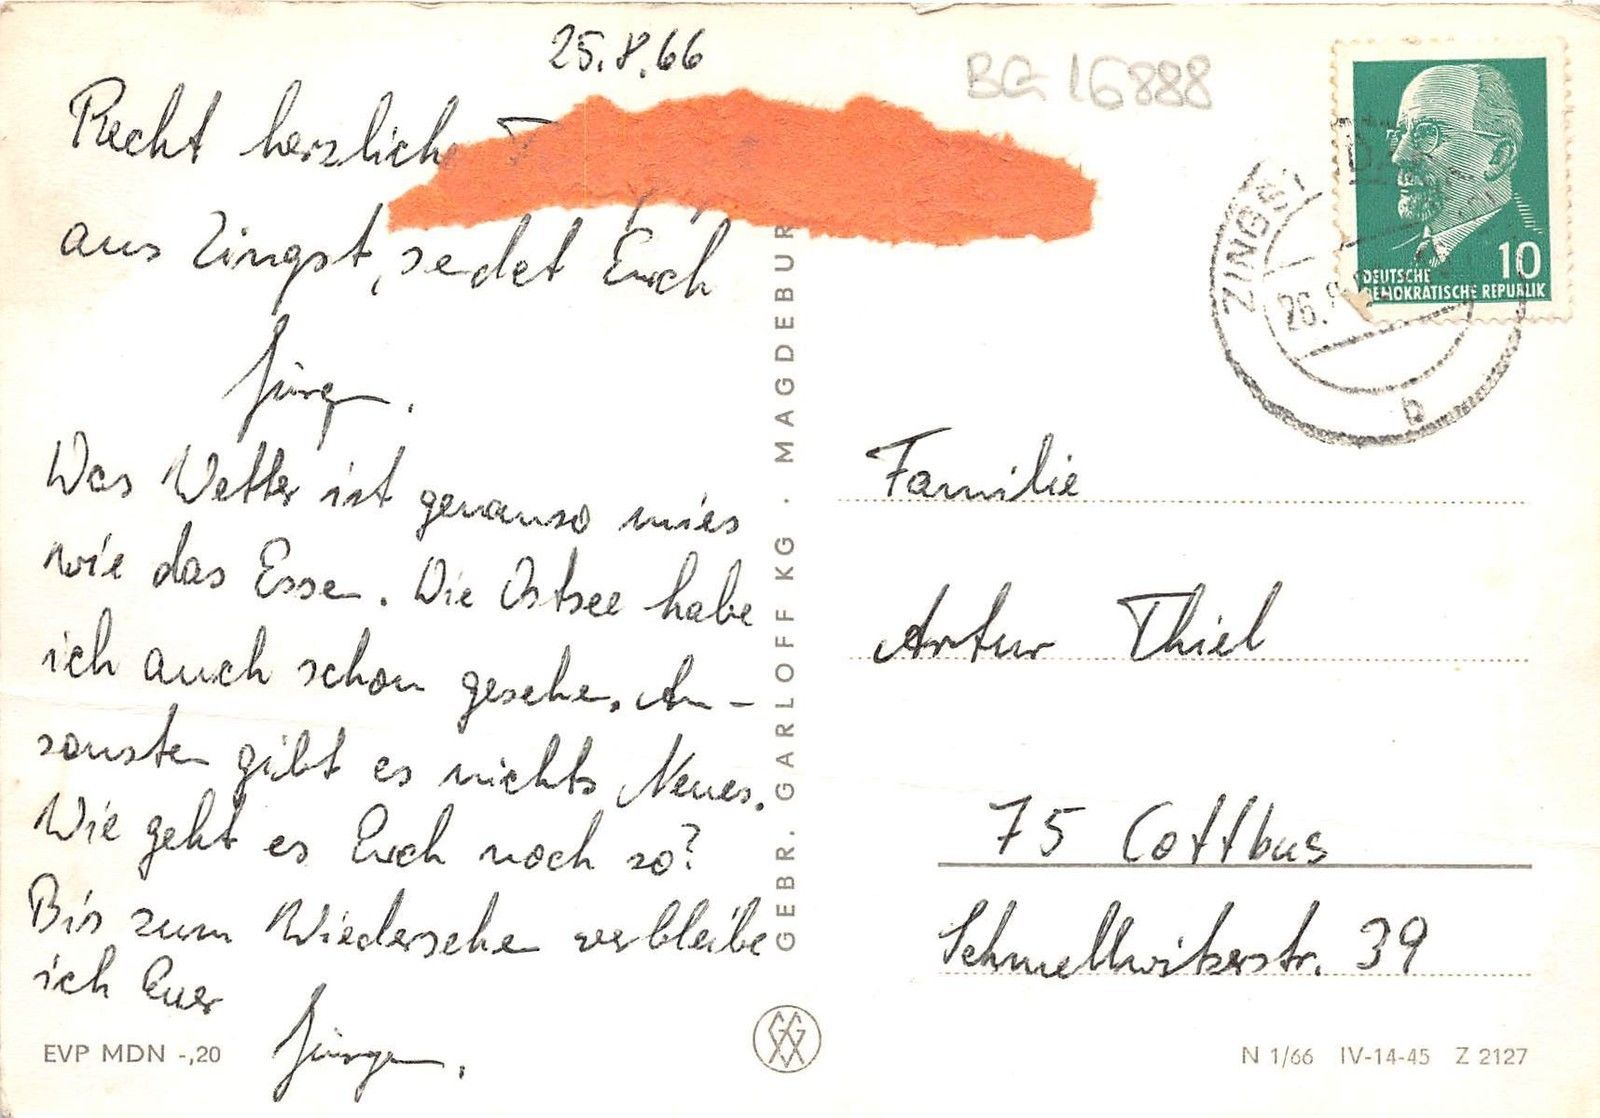 25.8.66
BG 16888
Recht herzliche
aus Zingst, sendet Euch
Jürgen.
Das Wetter ist genauso mies
wie das Essen. Die Ostsee habe
ich auch schon gesehen. An-
sonsten gibt es nichts Neues.
Wie geht es Euch noch so?
Bis zum Wiedersehen verbleibe
ich Euer
Jürgen.
EVP MDN -,20
GEBR. GARLOFF KG · MAGDEBURG
10
DEUTSCHE
DEMOKRATISCHE REPUBLIK
ZINGST
26.
b
Familie
Artur Thiel
75 Cottbus
Schmellwitzerstr. 39
N 1/66 IV-14-45 Z 2127